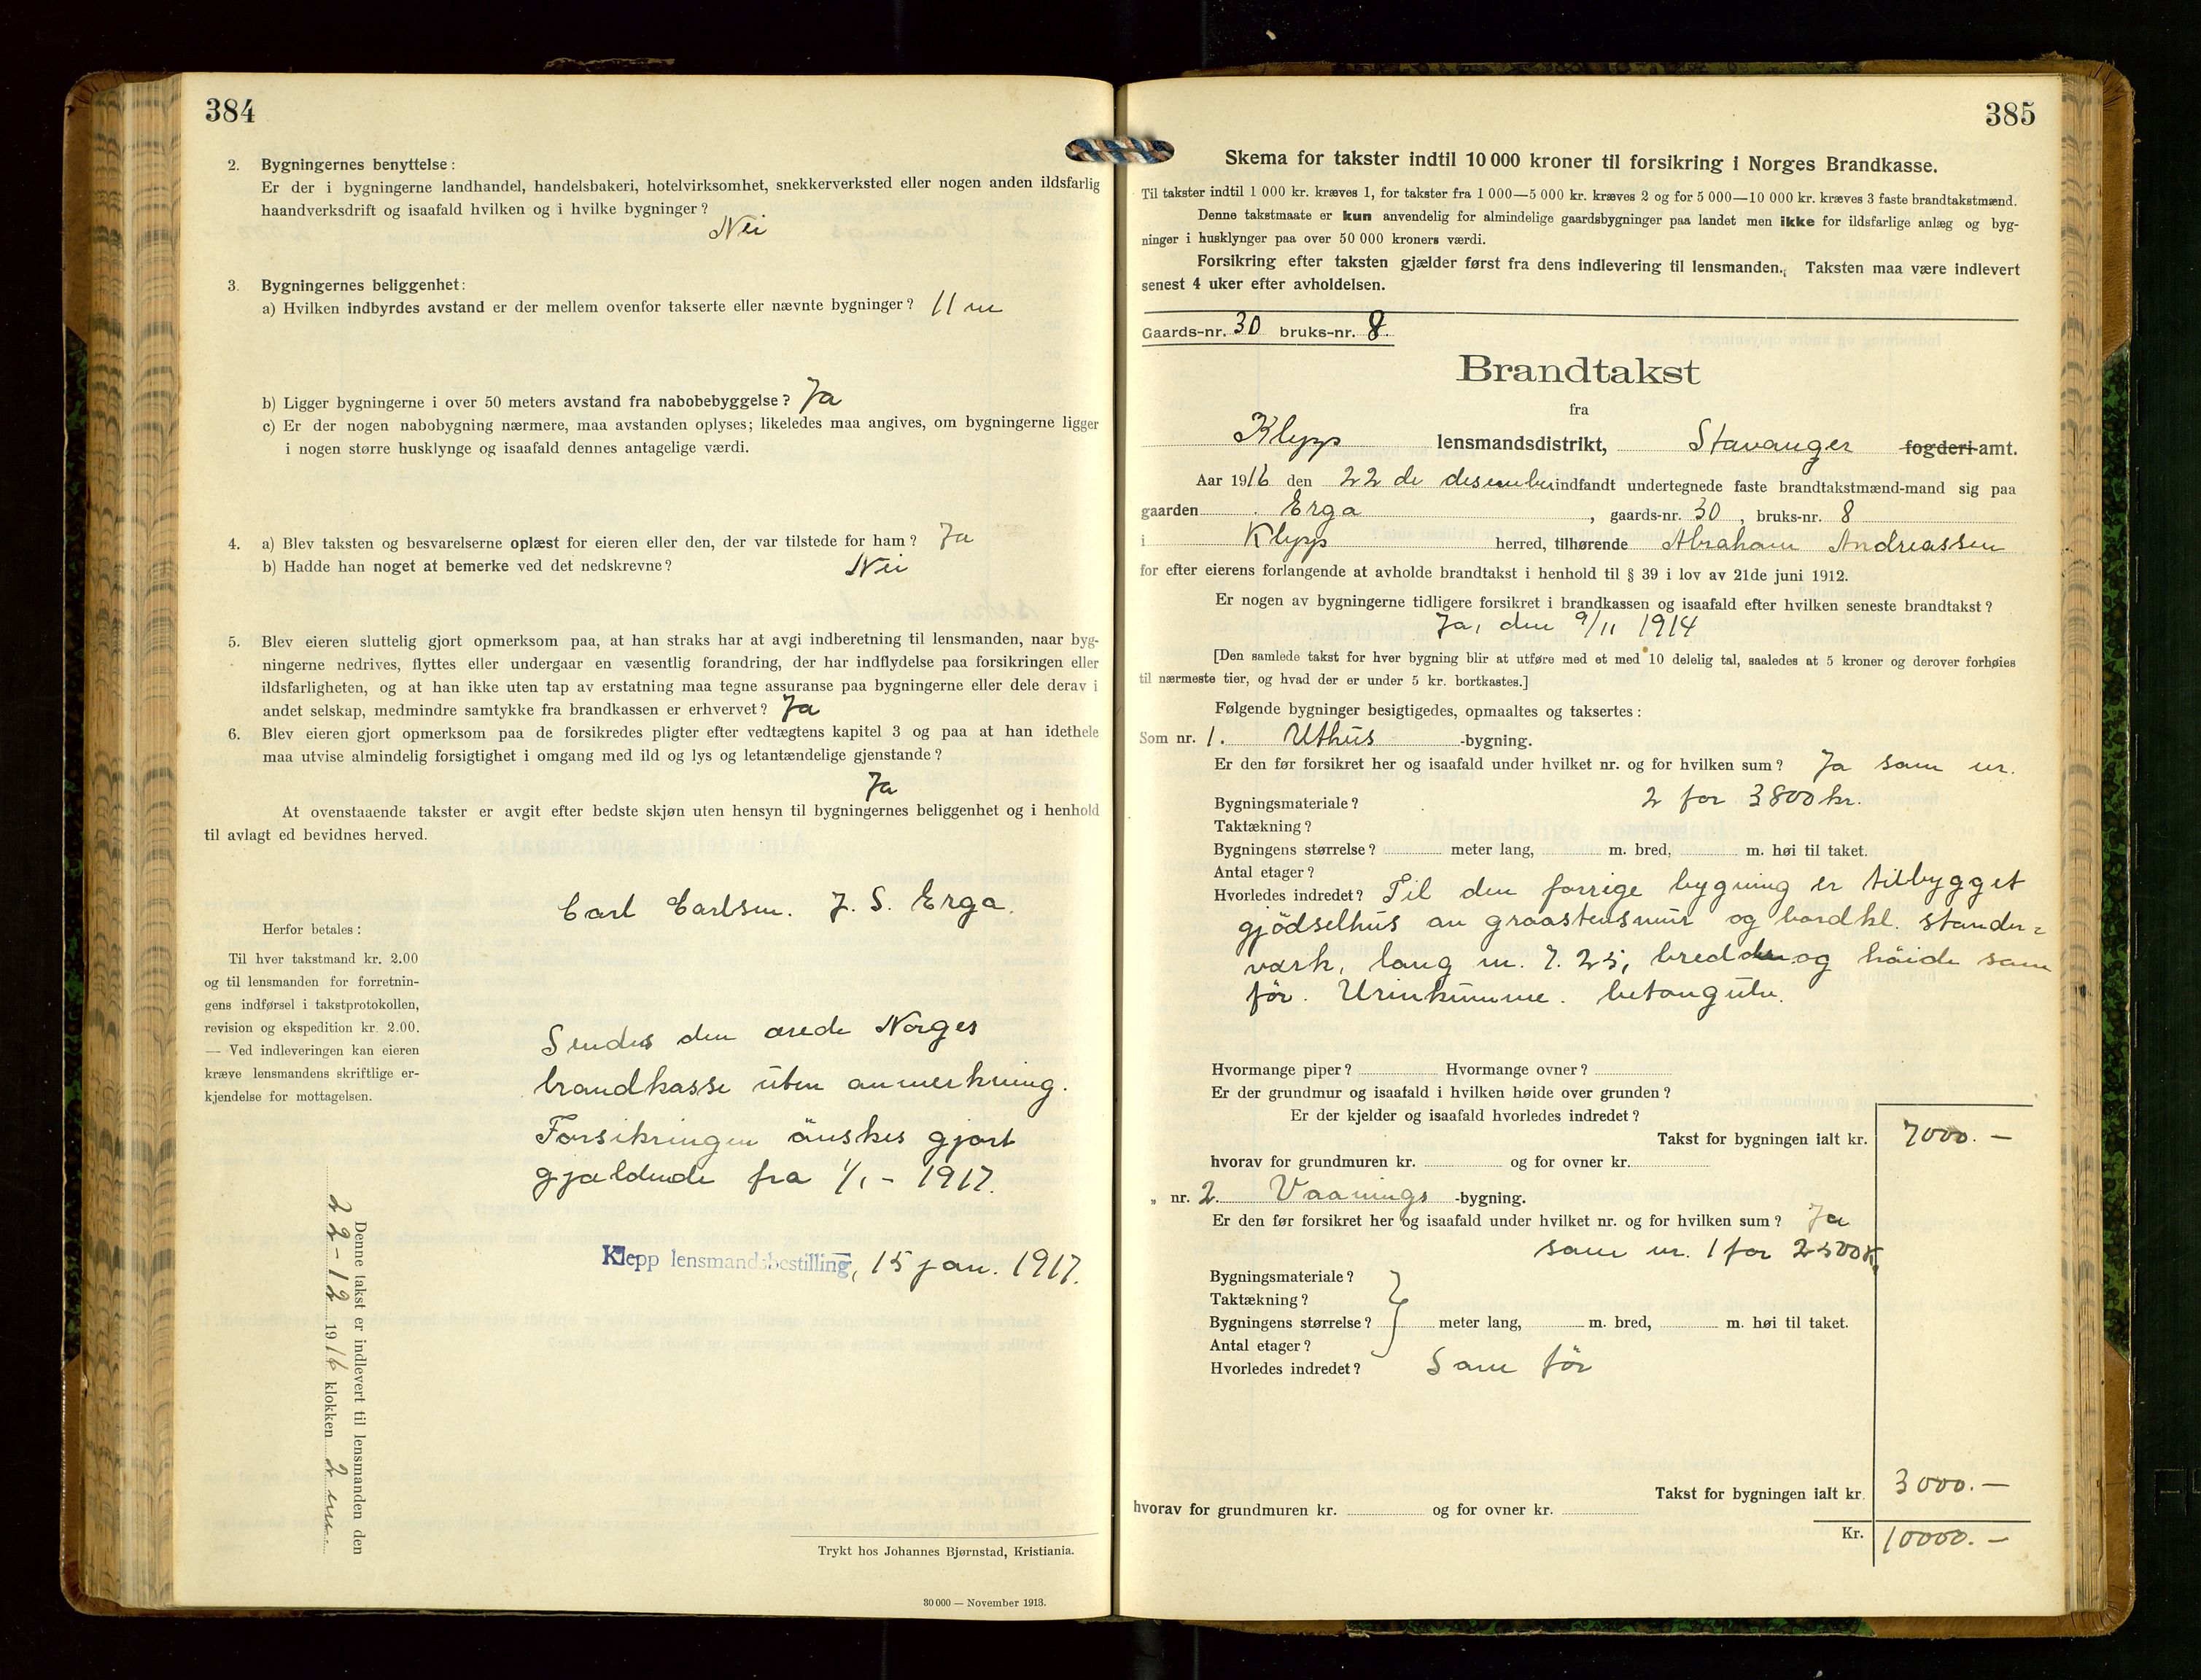 384
2. Bygningernes benyttelse:
Er der i bygningerne landhandel, handelsbakeri, hotelvirksomhet, snekkerverksted eller nogen anden ildsfarlig
haandverksdrift og isaafald hvilken og i hvilke bygninger?
Nei
3. Bygningernes beliggenhet:
a) Hvilken indbyrdes avstand er der mellem ovenfor takserte eller nævnte bygninger? 11 m
b) Ligger bygningerne i over 50 meters avstand fra nabobebyggelse? Ja
c) Er der nogen nabobygning nærmere, maa avstanden oplyses; likeledes maa angives, om bygningerne ligger
i nogen større husklynge og isaafald dennes antagelige værdi.
4. a) Blev taksten og besvarelserne oplæst for eieren eller den, der var tilstede for ham? Ja
b) Hadde han noget at bemerke ved det nedskrevne? Nei
5. Blev eieren sluttelig gjort opmerksom paa, at han straks har at avgi indberetning til lensmanden, naar byg-
ningerne nedrives, flyttes eller undergaar en væsentlig forandring, der har indflydelse paa forsikringen eller
ildsfarligheten, og at han ikke uten tap av erstatning maa tegne assuranse paa bygningerne eller dele derav i
andet selskap, medmindre samtykke fra brandkassen er erhvervet? Ja
6. Blev eieren gjort opmerksom paa de forsikredes pligter efter vedtægtens kapitel 3 og paa at han idethele
maa utvise almindelig forsigtighet i omgang med ild og lys og letantændelige gjenstande?
Ja
At ovenstaaende takster er avgit efter bedste skjøn uten hensyn til bygningernes beliggenhet og i henhold
til avlagt ed bevidnes herved.
Carl Carlsen. J. S. Erga.
Herfor betales:
Til hver takstmand kr. 2.00
og til lensmanden for forretnin-
gens indførsel i takstprotokollen,
revision og ekspedition kr. 2.00.
— Ved indleveringen kan eieren
kræve lensmandens skriftlige er-
kjendelse for mottagelsen.
Sendes den ærede Norges
brandkasse uten anmerkning.
Forsikringen önskes gjort
gjældende fra 1/1 - 1917.
Klepp lensmandsbestilling, 15 jan. 1917.
Denne takst er indlevert til lensmanden den
22-12 1916 klokken 2 em.
Trykt hos Johannes Bjørnstad, Kristiania.
30 000 — November 1913.
385
Skema for takster indtil 10 000 kroner til forsikring i Norges Brandkasse.
Til takster indtil 1 000 kr. kræves 1, for takster fra 1 000—5 000 kr. kræves 2 og for 5 000—10 000 kr. kræves 3 faste brandtakstmænd.
Denne takstmaate er kun anvendelig for almindelige gaardsbygninger paa landet men ikke for ildsfarlige anlæg og byg-
ninger i husklynger paa over 50 000 kroners værdi.
Forsikring efter taksten gjælder først fra dens indlevering til lensmanden. Taksten maa være indlevert
senest 4 uker efter avholdelsen.
Gaards-nr. 30 bruks-nr. 8
Brandtakst
fra
Klepp lensmandsdistrikt, Stavanger fogderi-amt.
Aar 1916 den 22 de desember indfandt undertegnede faste brandtakstmænd-mand sig paa
gaarden Erga, gaards-nr. 30, bruks-nr. 8
i Klepp herred, tilhørende Abraham Andreassen
for efter eierens forlangende at avholde brandtakst i henhold til § 39 i lov av 21de juni 1912.
Er nogen av bygningerne tidligere forsikret i brandkassen og isaafald efter hvilken seneste brandtakst?
Ja, den 9/11 1914
[Den samlede takst for hver bygning blir at utføre med et med 10 delelig tal, saaledes at 5 kroner og derover forhøies
til nærmeste tier, og hvad der er under 5 kr. bortkastes.]
Følgende bygninger besigtigedes, opmaaltes og taksertes:
Som nr. 1. Uthus -bygning.
Er den før forsikret her og isaafald under hvilket nr. og for hvilken sum? Ja som nr.
Bygningsmateriale? 2 for 3800 kr.
Taktækning?
Bygningens størrelse? meter lang, m. bred, m. høi til taket.
Antal etager?
Hvorledes indredet? Til den forrige bygning er tilbygget
gjödselhus av graastensmur og bordkl. stander=
værk, lang m. 7.25, bredde og höide som
för. Urinkumme. betongulv.
Hvormange piper? Hvormange ovner?
Er der grundmur og isaafald i hvilken høide over grunden?
Er der kjelder og isaafald hvorledes indredet?
Takst for bygningen ialt kr. 7000.—
hvorav for grundmuren kr. og for ovner kr.
„ nr. 2. Vaanings -bygning.
Er den før forsikret her og isaafald under hvilket nr. og for hvilken sum? Ja
som nr. 1 for 2500 K.
Bygningsmateriale?
Taktækning?
Bygningens størrelse? meter lang, m. bred, m. høi til taket.
Antal etager?
Hvorledes indredet? Som för
Takst for bygningen ialt kr. 3000.—
hvorav for grundmuren kr. og for ovner kr.
Kr. 10000.—